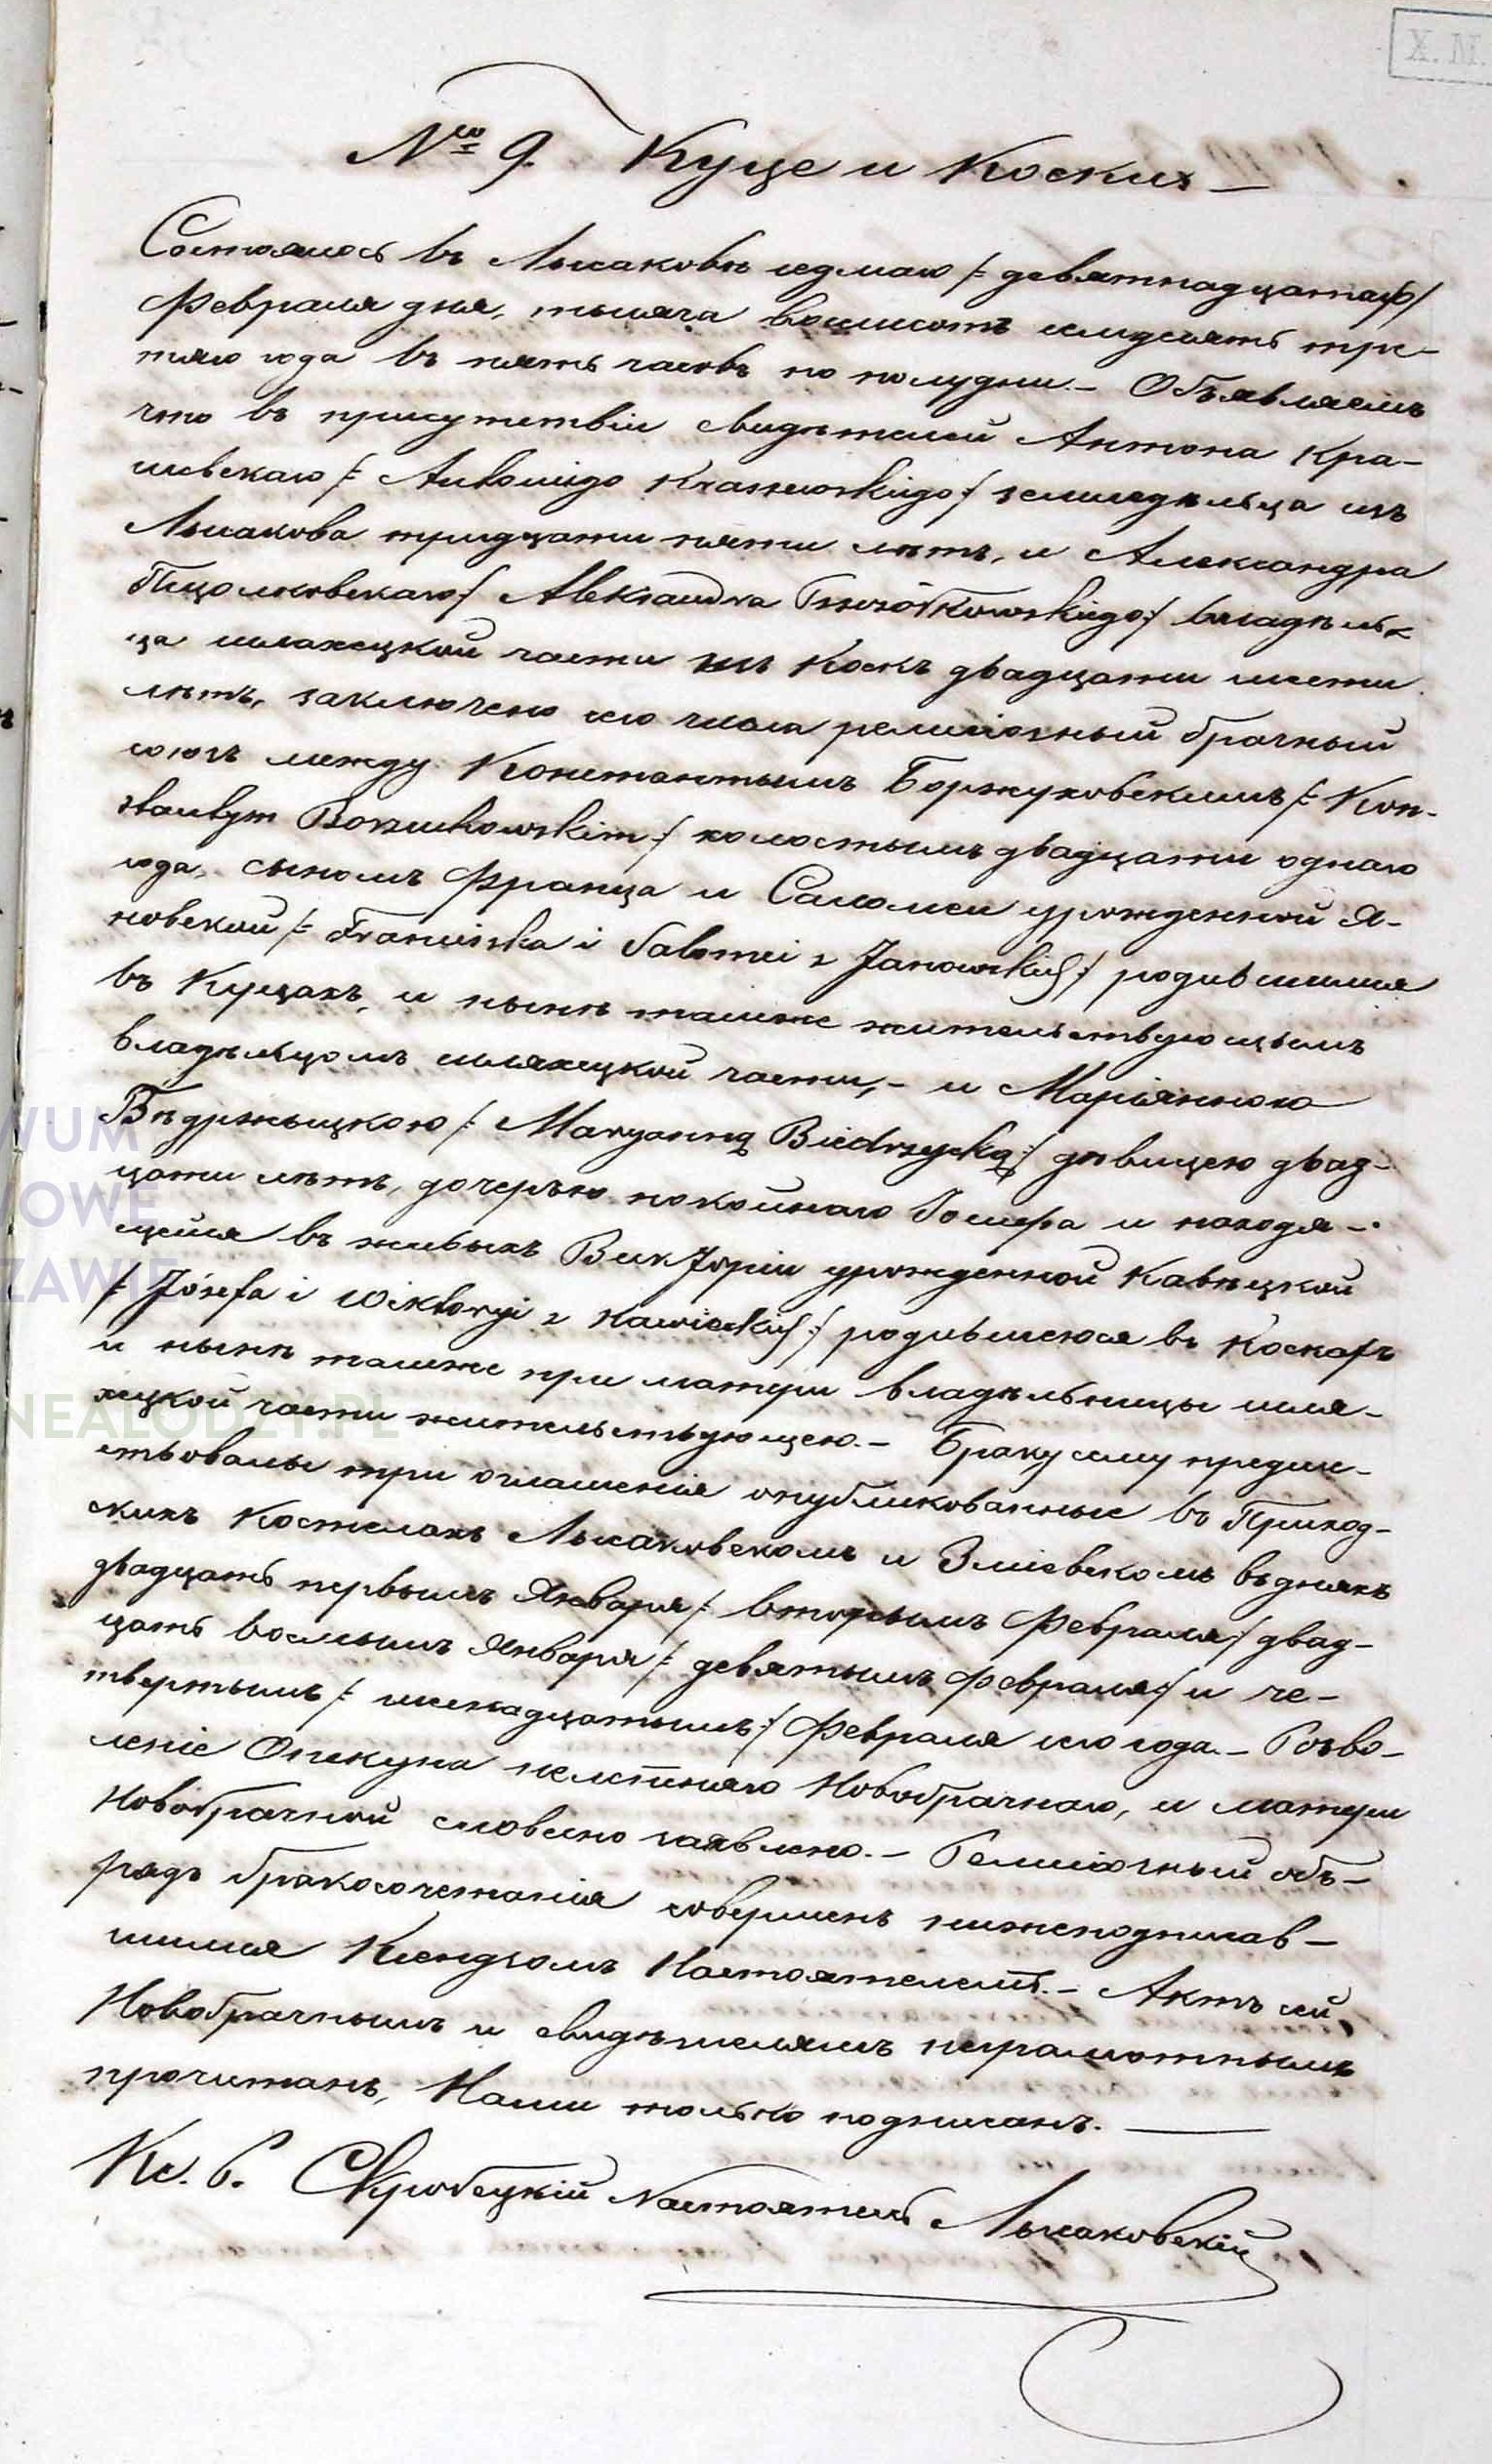 X. M.
№ 9. Куце и Коски
Состоялось въ Лысаковѣ седмаго /: девятнадцатаго/
Февраля дня, тысяча восемсотъ семдесять тре-
тяго года въ пять часовъ по полудни. – Объявляемъ
что въ присутствіи свидѣтелей Антона Кра-
шевскаго /: Antoniego Kraszewskiego :/ земледѣльца изъ
Лысакова тридцати пяти лѣтъ, и Александра
Пщолковскаго /: Aleksandra Pszczółkowskiego :/ владѣль-
ца шляхецкой части изъ Коскъ двадцати шести
лѣтъ, заключено сего числа религіозный брачный
союзъ между Константымъ Боржуховскимъ /: Kon-
stantym Borzuchowskim :/ холостымъ двадцати однаго
года, сыномъ Франца и Саломеи урожденной Я-
новской /: Franciszka i Salomei z Janowskich :/ родившимся
въ Куцахъ, и нынѣ тамже жительствующымъ
владѣльцомъ шляхецкой части, – и Маріянною
Бѣдржыцкою /: Maryanną Biedrzycką :/ дѣвицею двад-
цати лѣтъ, дочерью покойнаго Іосифа и находя-
щейся въ живыхъ Викторіи урожденной Кавѣцкой
/: Józefa i Wiktoryi z Kawieckich :/ родившеюся въ Коскахъ
и нынѣ тамже при матери владѣльницы шля-
хецкой части жительствующею. – Браку сему предше-
ствовалы три оглашенія опубликованные въ Приход-
скихъ Костелахъ Лысаковскомъ и Зміевскомъ въ дняхъ
двадцать первымъ Января /: вторымъ Февраля :/ двад-
цать восмымъ Января /: девятымъ Февраля :/ и че-
твертымъ /: шекнадцатымъ :/ Февраля сего года. – Созво-
леніе Опекуна нелѣтняго Новобрачнаго, и матери
Новобрачной словесно заявлено. – Религіозный объ-
рядъ бракосочетанія совершенъ нижеподписав-
шимся Ксендзомъ Настоятелемъ. – Актъ сей
Новобрачнымъ и свидѣтелямъ неграмотнымъ
прочитанъ, Нами только подписанъ.
Кс. Б. Скробецкій Настоятель Лысаковскій
WUM
WOWE
ZAWIE
NEALODZY.PL